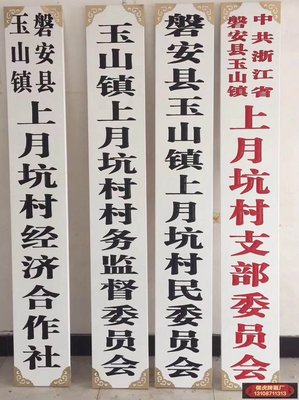 磐安县
玉山镇
上月坑村经济合作社
玉山镇上月坑村村务监督委员会
磐安县玉山镇上月坑村民委员会
中共浙江省
磐安县玉山镇
上月坑村支部委员会
俊虎牌匾厂
13106711313